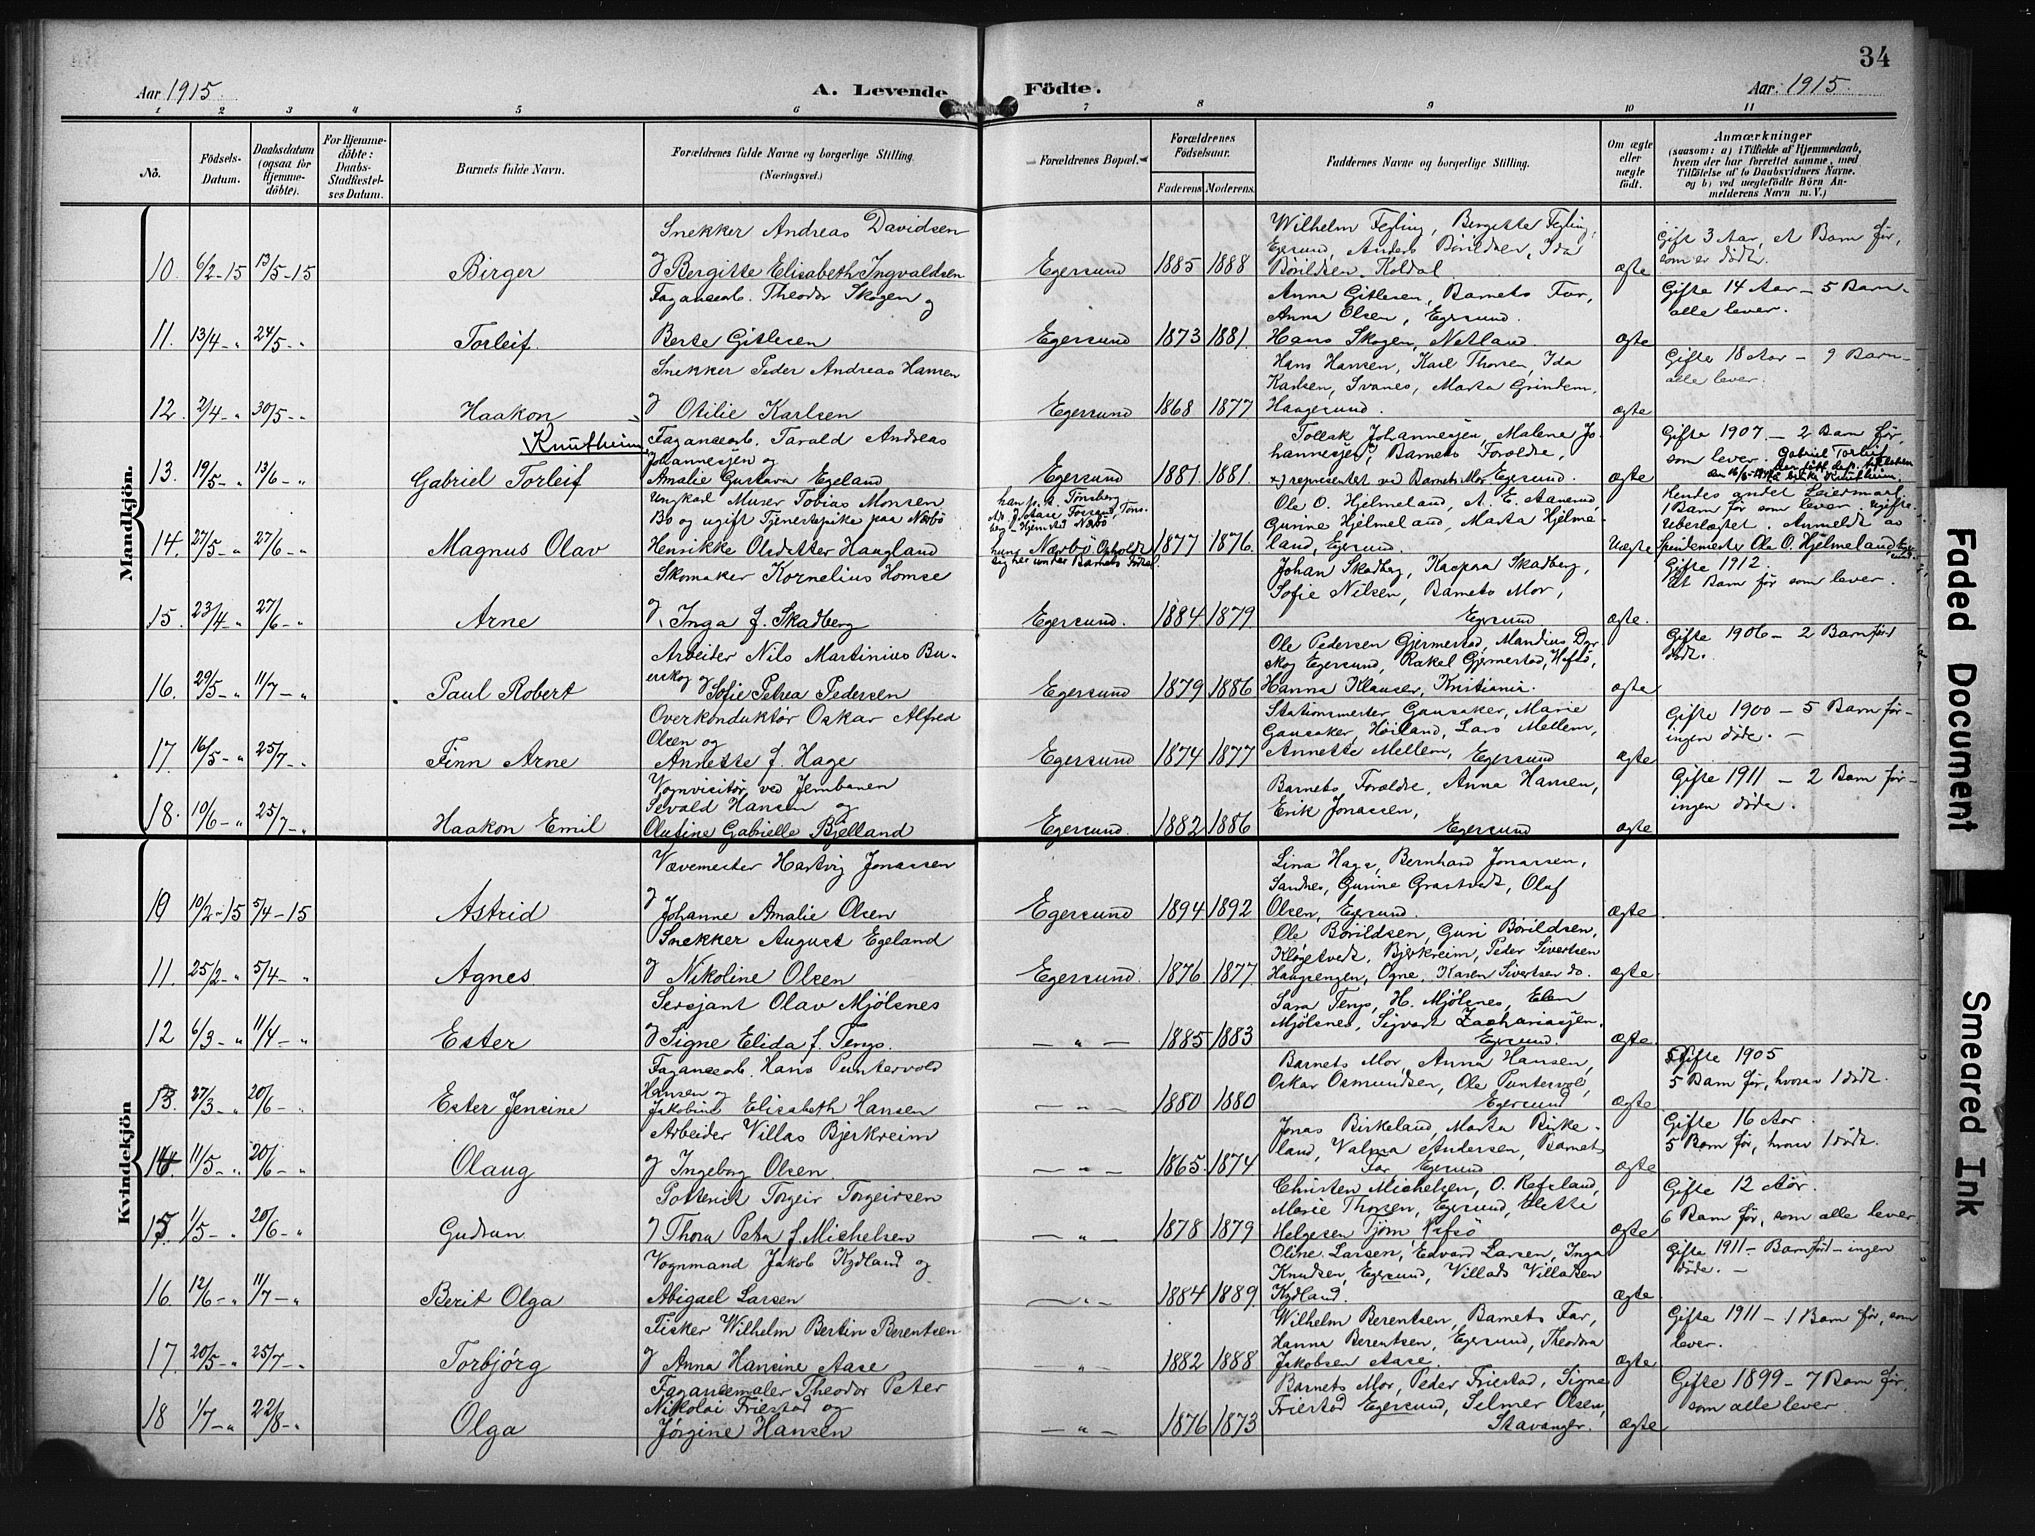 34
Aar 1915.
A. Levende Födte.
Aar: 1915.
1 2 3 4 5 6 7 8 9 10 11
No.
Födsels-Datum.
Daabsdatum (ogsaa for Hjemmedöbte).
For Hjemmedöbte: Daabs-Stadfæstelses Datum.
Barnets fulde Navn.
Forældrenes fulde Navne og borgerlige Stilling. (Næringsvei.)
Forældrenes Bopæl.
Forældrenes Födselsaar.
Faderens. Moderens.
Faddernes Navne og borgerlige Stilling.
Om ægte eller uægte födt.
Anmærkninger
(saasom: a) i Tilfælde af Hjemmedaab, hvem der har forrettet samme, med Tilföielse af to Daabsvidners Navne, og b) ved uægtefödte Börn Anmelderens Navn m. V.)
Mandkjön.
Snekker Andreas Davidsen
Wilhelm Fejling, Bergitte Fejling,
Egersund, Anders Börildsen, Ida
Gift 3 Aar, et Barn før,
som er dödt.
10. 6/2-15 13/5-15 Birger
& Bergitte Elisabeth Ingvaldsen
Egersund 1885 1888 Börildsen Koldal. ægte
Fayancearb. Theodor Skogen og
Anna Gitlesen, Barnets Far,
Anna Olsen, Egersund.
Gifte 14 Aar - 5 Barn -
alle lever.
11. 13/4 - " 24/5 - " Torleif.
Berte Gitlesen
Egersund 1873 1881. Hans Skogen, Netland. ægte
Snekker Peder Andreas Hansen
Hans Hansen, Karl Thorsen, Ida
Karlsen, Svanes, Marta Grindem,
Gifte 18 Aar - 9 Barn -
alle lever.
12. 2/4 - " 30/5 - " Haakon
& Otilie Karlsen
Egersund 1868 1877 Haugesund. ægte
Knutheim
Fayancearb. Tarald Andreas
Johannesjen og
Tollak Johannesjen, Malene Jo-
hannesjen, Barnets Foreldre,
Gifte 1907 - 2 Barn før,
som lever. Gabriel Torleif
13. 19/5 - " 13/6 - " Gabriel Torleif
Amalie Gustava Egeland
Egersund 1881 1881. x) representet ved Barnets Mor Egersund. ægte
Ungkarl Murer Tobias Monsen
Bø og ugift Tjenestepike paa Nærbø
Ole O. Hjelmeland, A. E. Aanerud,
Gurine Hjelmeland, Marta Hjelme-
Hendes andet Leiermaal
1 Barn før som lever. Ugifte.
Uberlægtet. Anmeldt av
14. 27/5 - " 27/6 - " Magnus Olav
Henrikke Olsdatter Haugland
hans p. a. Tønsberg
hun: Nærbø Opholdt
sig her under Barnets Fødsel.
1877 1876. land, Egersund. Uægte
Spindemester Ole O. Hjelmeland, Egersund.
Skomaker Kornelius Homse
Johan Skadberg, Kaspara Skadberg,
Sofie Nilsen, Barnets Mor,
Gifte 1912.
Et Barn før som lever.
15. 23/4 - " 27/6 - " Arne
& Inga f. Skadberg
Egersund. 1884 1879. Egersund ægte.
Arbeider Nils Martinius Bu-
erskog &
Ole Pedersen Gjermestad, Mandius Dar-
skog Egersund, Rakel Gjermestad, Hafsö,
Gifte 1906 - 2 Barn før
dødt.
16. 29/5 - " 11/7 - " Paul Robert
Sofie Petrea Pedersen
Egersund 1879 1886 Hanna Klauser, Kristiania. ægte
Overkonduktör Oskar Alfred
Olsen og
Stationsmester Gausaker, Marie
Gausaker, Høiland, Lars Mellem,
Gifte 1900 - 5 Barn før -
ingen døde. -
17. 16/5 - " 25/7 - " Finn Arne
Annette f. Hage
Egersund 1874 1877 Annette Mellem, Egersund ægte
Vognvisitør ved Jernbanen
Sevald Hansen og
Barnets Forældre, Anna Hansen,
Erik Jonassen,
Gifte 1911 - 2 Barn før -
ingen døde.
18. 10/6 - " 25/7 - " Haakon Emil
Olufine Gabrielle Bjelland
Egersund. 1882 1886 Egersund ægte
Kvindekjön
Vævemester Hartvig Jonassen
Lina Haga, Bernhard Jonassen,
Sandnes, Gurine Grastvedt, Oluf
10 10/2-15 5/4-15 Astrid
& Johanne Amalie Olsen
Egersund 1894 1892 Olsen, Egersund. ægte
Snekker August Egeland
Ole Börildsen, Guri Börildsen,
Kløgetvedt, Bjerkreim, Peder Sivertsen
11. 25/2 - " 5/4 - " Agnes.
& Nikoline Olsen
Egersund. 1876 1877. Haugsengen, Ogne, Karen Sivertsen do. ægte.
Sersjant Olav Mjölsnes
Sara Tengs, H. Mjölsnes, Elen
Mjölsnes, Sigvart Zachariasjen,
12 6/3 - " 11/4 - " Ester
& Signe Elida f. Tengs.
- " - 1885 1883 Egersund. ægte.
Fayancearb. Hans Puntervold
Hansen og
Barnets Mor, Anna Hansen,
Oskar Osmundsen, Ole Puntervol,
Gifte 1905
5 Barn før, hvorav 1 dødt.
13. 27/3 - " 20/6 - " Ester Jensine
Jakobine Elisabeth Hansen
- " - 1880 1880 Egersund ægte
Arbeider Villas Bjerkreim
Jonas Birkeland, Marta Birke-
land, Valma Andersen, Barnets
Gifte 16 Aar.
5 Barn før, hvorav 1 dødt.
14. 11/5 - " 20/6 - " Olaug
& Ingeborg Olsen.
- " - 1865 1874 Far Egersund ægte
Pottenit Torgeir Torgeirsen
Christen Michelsen, O. Refsland,
Marie Thorsen, Egersund, Elette
Gifte 12 Aar.
6 Barn før, som alle lever
15. 1/5 - " 20/6 - " Gudrun
& Thora Petra f. Michelsen
- " - 1878 1879 Helgesen Tjörn Hafsö ægte
Vognmand Jakob Kydland og
Oline Larsen, Edvard Larsen, Inga
Knudsen, Egersund, Villads Villadsen
Gifte 1911 - Barn før - ingen
døde. -
16. 12/6 - " 11/7 - " Berit Olga
Abigael Larsen
- " - 1884 1889. Kydland. ægte
Fisker Wilhelm Bertin Berentsen
Wilhelm Berentsen, Barnets Far,
Hanna Berentsen, Egersund, Theodora
Gifte 1911 - 1 Barn før, som
lever.
17. 20/5 - " 25/7 - " Torbjörg
& Anna Hansine Aase
- " - 1882 1888 Jakobsen Aase. ægte
Fayancemaler Theodor Peter
Nikolai Friestad og
Barnets Mor, Peder Friestad, Signe
Friestad Egersund, Selmer Olsen,
Gifte 1899 - 7 Barn før,
som alle lever
18 1/7 - " 22/8 - " Olga
Jørgine Hansen
- " - 1876 1873 Stavanger. ægte
Faded Document
Smeared Ink